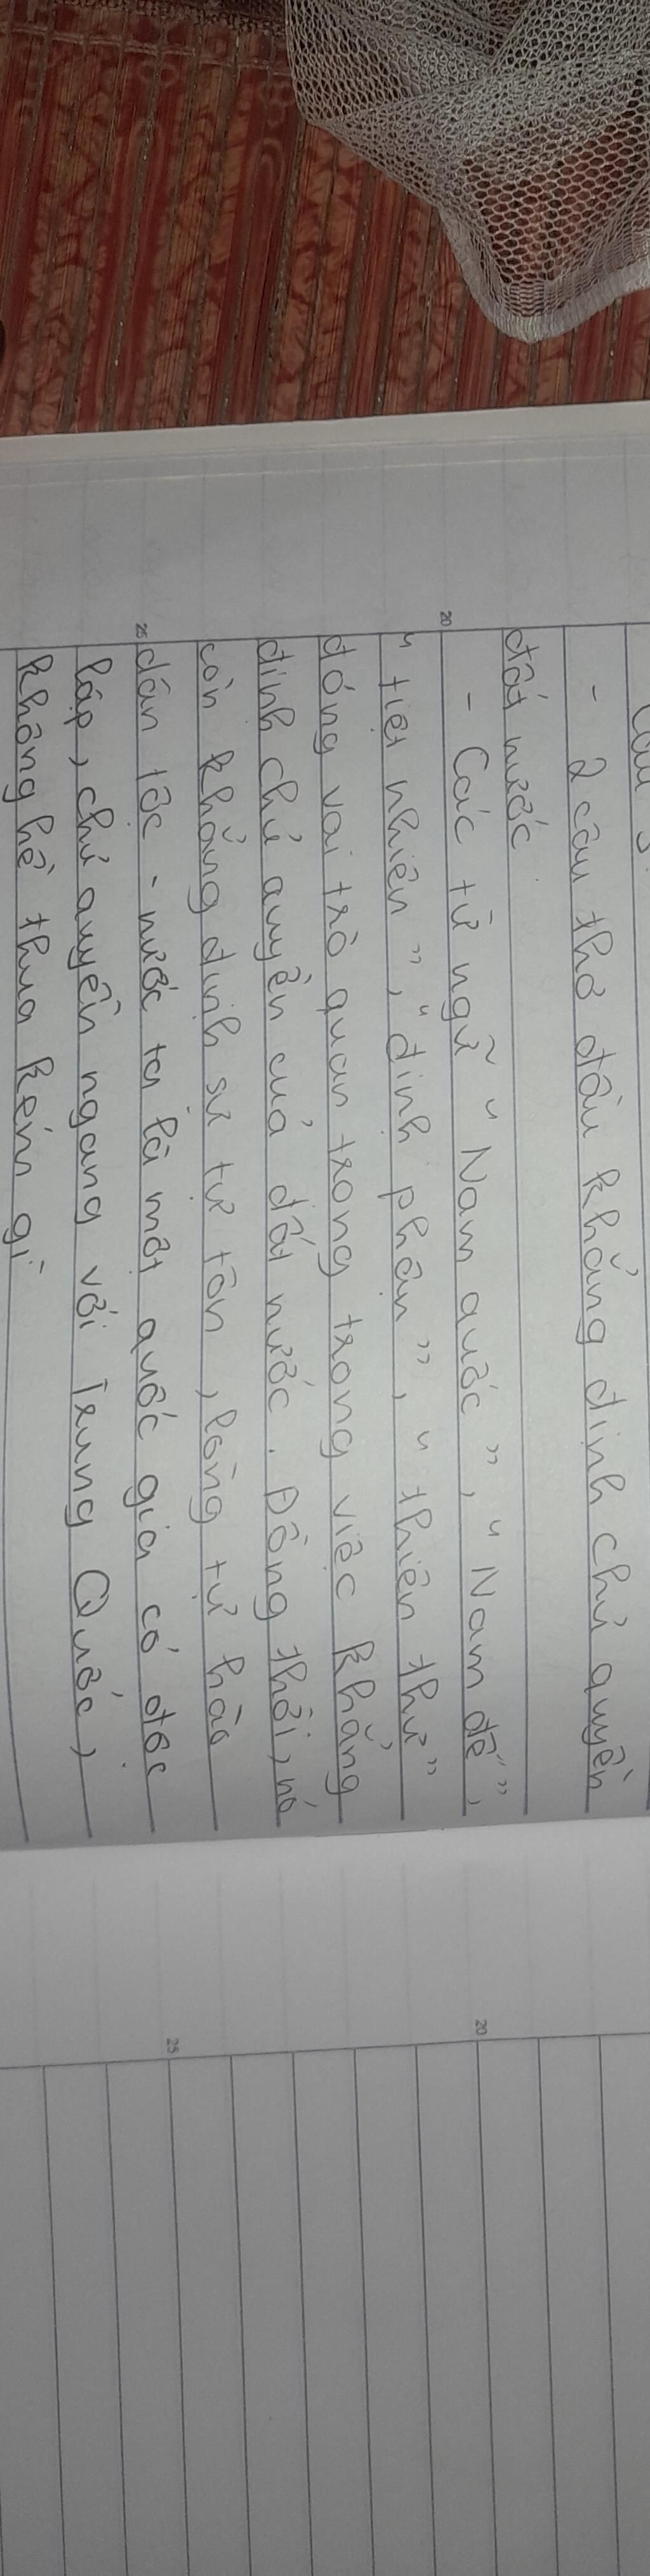 Câu 3:
- 2 câu thơ đầu khẳng định chủ quyền
đất nước
20
- Các từ ngữ "Nam quốc", "Nam đế",
"tiệt nhiên", "định phận", "thiên thư"
đóng vai trò quan trọng trong việc khẳng
định chủ quyền của đất nước. Đồng thời, nó
còn khẳng định sự tự tôn, lòng tự hào
25
dân tộc - nước ta là một quốc gia có độc
lập, chủ quyền ngang với Trung Quốc,
không hề thua kém gì
20
25